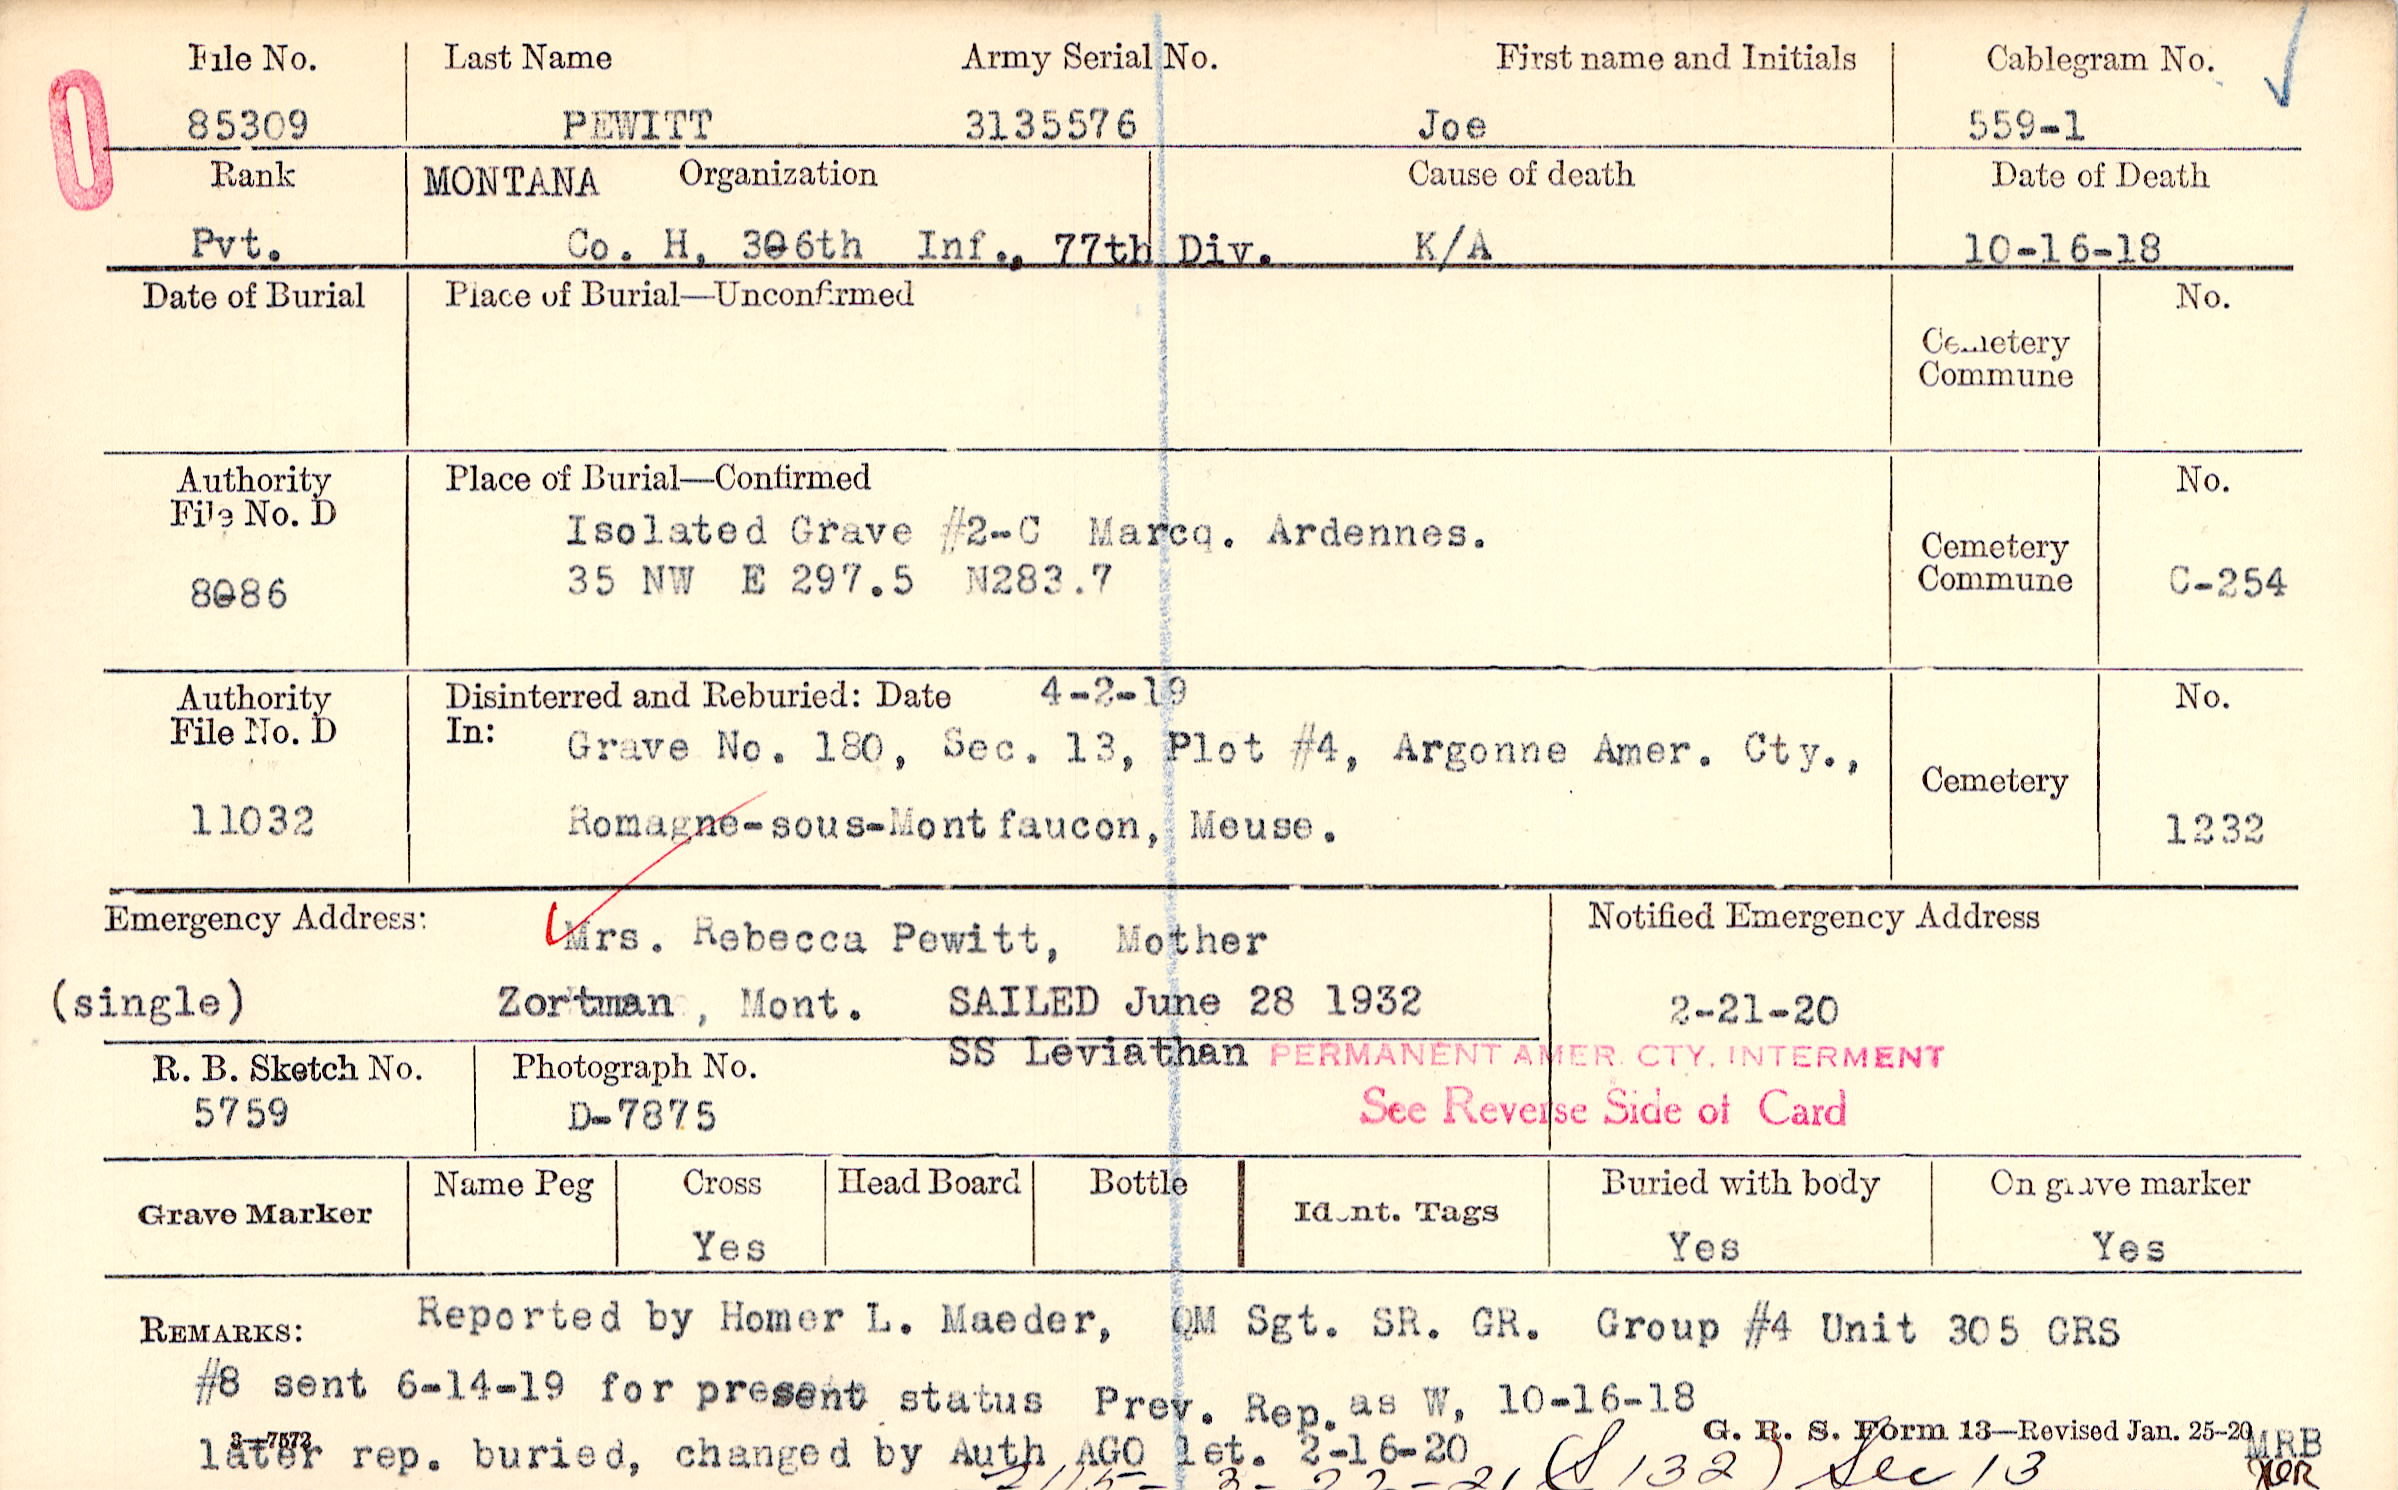 File No. Last Name Army Serial No. First name and Initials Cablegram No.
85309 PEWITT 3135576 Joe 559-1
Rank MONTANA Organization Cause of death Date of Death
Pvt. Co. H, 306th Inf., 77th Div. K/A 10-16-18
Date of Burial Place of Burial—Unconfirmed No.
Cemetery
Commune
Authority Place of Burial—Confirmed No.
File No. D
Isolated Grave #2-C Marcq. Ardennes.
Cemetery
8086 35 NW E 297.5 N283.7 Commune C-254
Authority Disinterred and Reburied: Date 4-2-19 No.
File No. D In: Grave No. 180, Sec. 13, Plot #4, Argonne Amer. Cty.,
Cemetery
11032 Romagne-sous-Montfaucon, Meuse. 1232
Emergency Address: Mrs. Rebecca Pewitt, Mother Notified Emergency Address
(single) Zortman, Mont. SAILED June 28 1932 2-21-20
SS Leviathan PERMANENT AMER. CTY. INTERMENT
R. B. Sketch No. Photograph No.
5759 D-7875 See Reverse Side of Card
Grave Marker Name Peg Cross Head Board Bottle Ident. Tags Buried with body On grave marker
Yes Yes Yes
REMARKS: Reported by Homer L. Maeder, QM Sgt. SR. GR. Group #4 Unit 305 GRS
#8 sent 6-14-19 for present status Prev. Rep. as W, 10-16-18
3—7572 G. R. S. Form 13—Revised Jan. 25-20
later rep. buried, changed by Auth AGO let. 2-16-20 MRB
3-22-21 (S 132) Sec 13